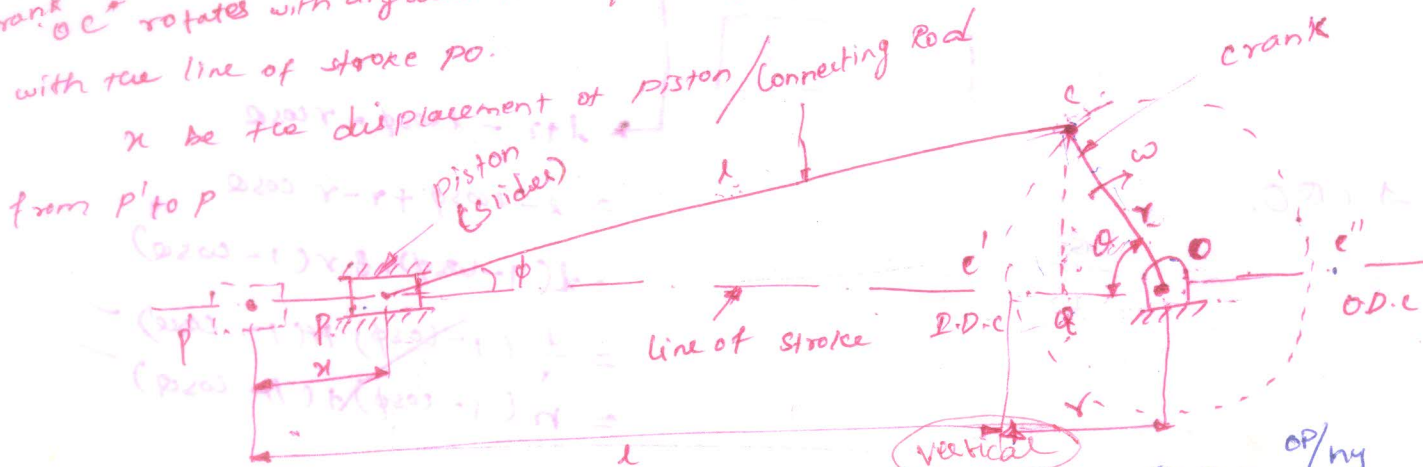 rank "OC" rotates with
with the line of stroke PO.
x be the displacement of piston/Connecting Rod
from P' to P
piston
(slider)
crank
C
l
ω
r
θ
O
ϕ
c'
c"
P'
P
I.D.C
Q
O.D.C
line of stroke
x
r
vertical
l
OP/hy